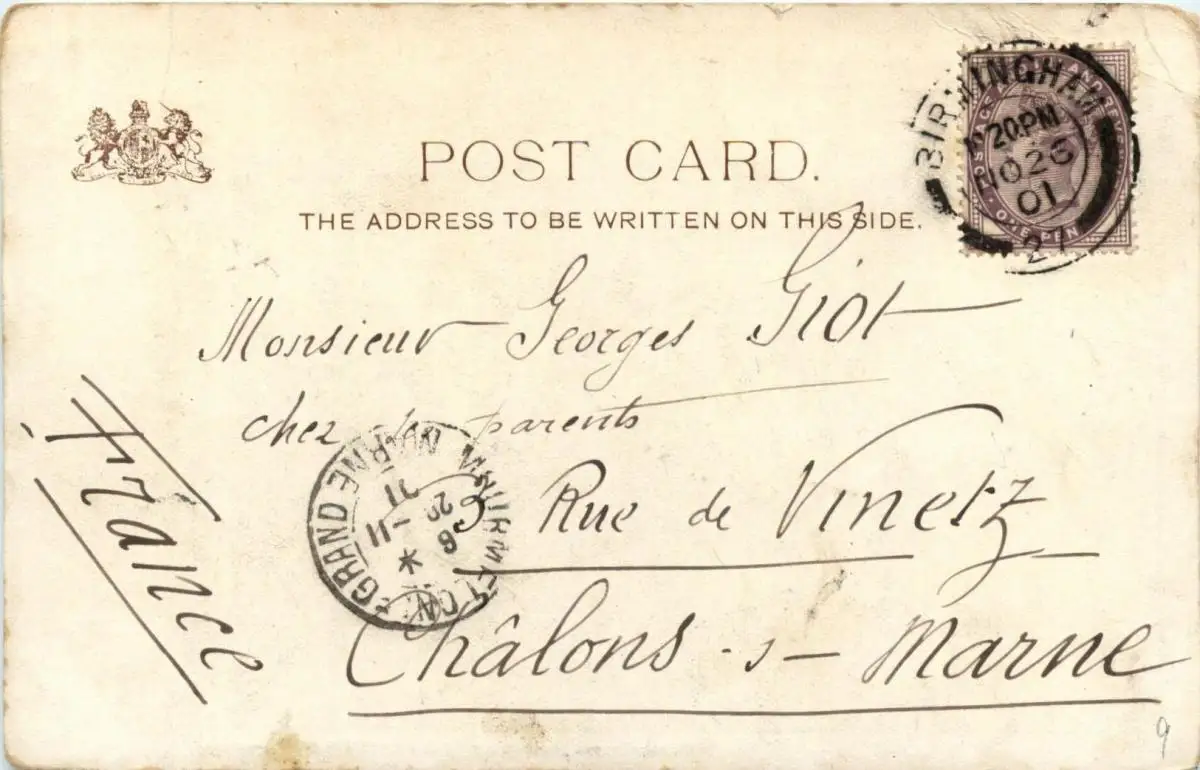 POST CARD.
THE ADDRESS TO BE WRITTEN ON THIS SIDE.
BIRMINGHAM
20.PM
NO 26
01
27
ONE PEN
Monsieur Georges Giot
chez ses parents
Rue de Vinetz
Châlons -s- Marne
France
GRANDE MARNE
9